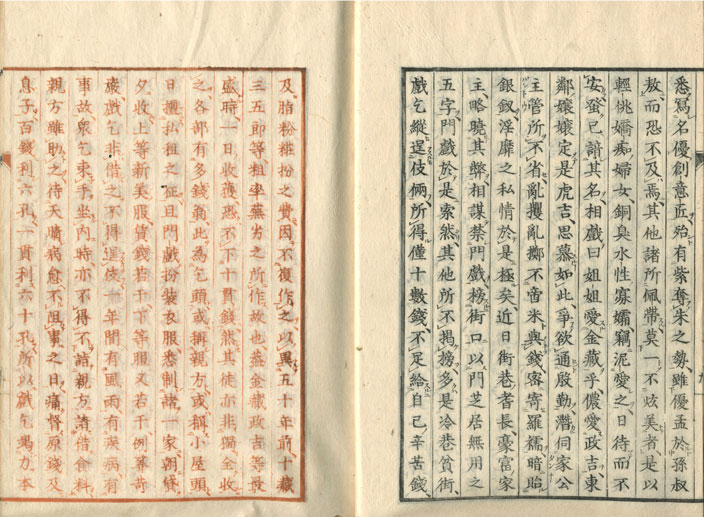 悉寫名優創意匠殆有紫奪朱之勢雖優孟於孫叔
敖而恐不及焉其他諸所佩帶莫一不炫美者是以
輕佻嬌痴婦女銅臭水性寡孀竊泥愛之日待而不
安蛩已諳其名相戲曰姐姐愛金藏乎儂愛政吉東
鄰孃孃定是虎吉思慕如此爭欲通殷勤潛伺家公
主管所不省亂攫亂擲不啻米與錢密寄羅襦暗貽
銀釵淫靡之私情於是極矣近日街巷者長豪富家
主略曉其弊相謀禁門戲榜街口以門芝居無用之
五字門戲於是索然其他所不揭榜多是冷巷貧街
戲乞縱逞伎倆所得僅十數錢不足給自己辛苦錢
及脂粉粧扮之費因不復作之以異五十年前十藏
三五郎等粗率蕪劣之所作故也蓋金藏政吉等最
盛時一日收獲恐不下十貫錢然其徒亦非獨全收
之各部有多錢翁此為乞頭或稱親方或稱小屋頭
日租之征且門戲扮裝衣服悉制諸一家朝貸
夕收上等新美服貸錢若干下等服又若干例苛
嚴戲乞非借之不得逞伎一年間有風雨有疾病有
事故眾乞束手坐内時亦不得不詣親方請借食料
親方雖助之待天晴病愈不阻事之日痛督原錢及
息子百錢利六孔一貫利六十孔所以戲乞竭力本